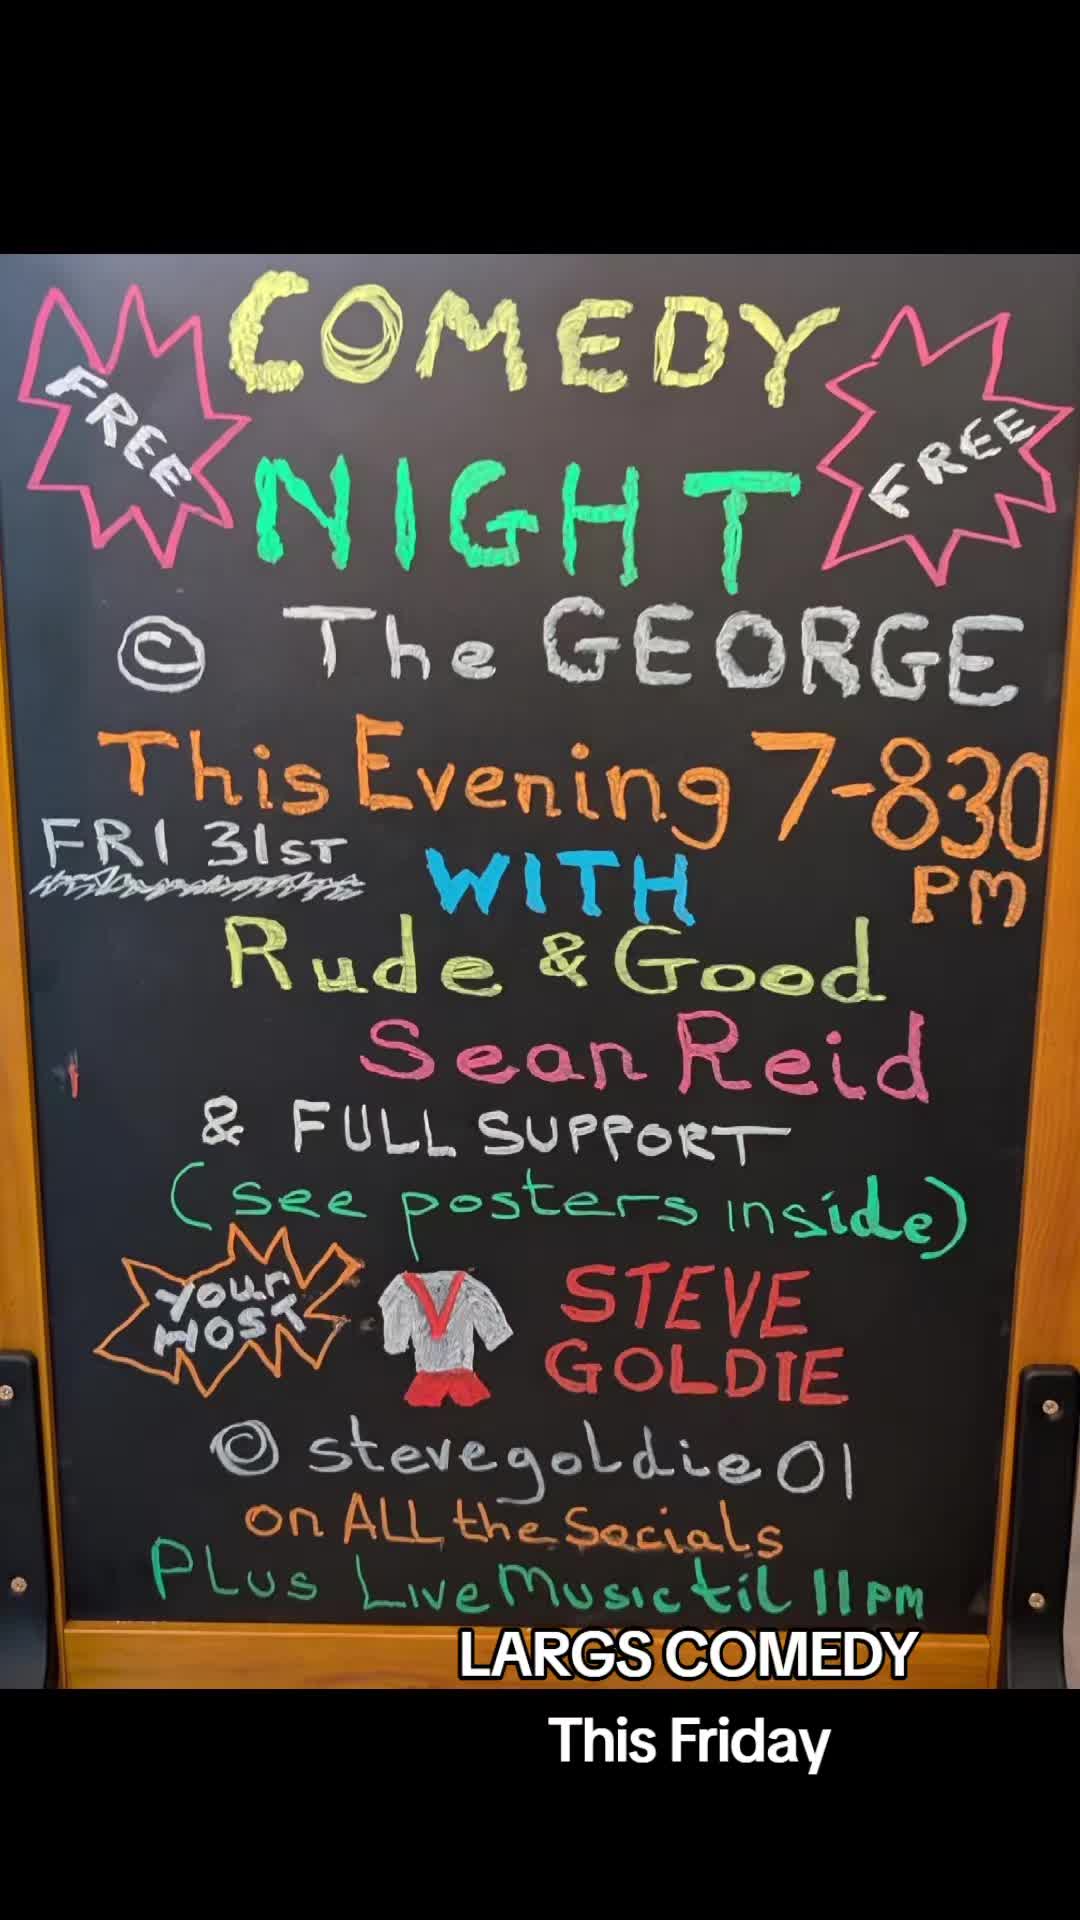 COMEDY
FREE
FREE
NIGHT
© The GEORGE
This Evening 7-8:30
PM
FRI 31ST
WITH
Rude & Good
Sean Reid
& FULL SUPPORT
(see posters inside)
Your
HOST
STEVE
GOLDIE
@ stevegoldie01
on ALL the Socials
PLus Live Music til 11PM
LARGS COMEDY
This Friday